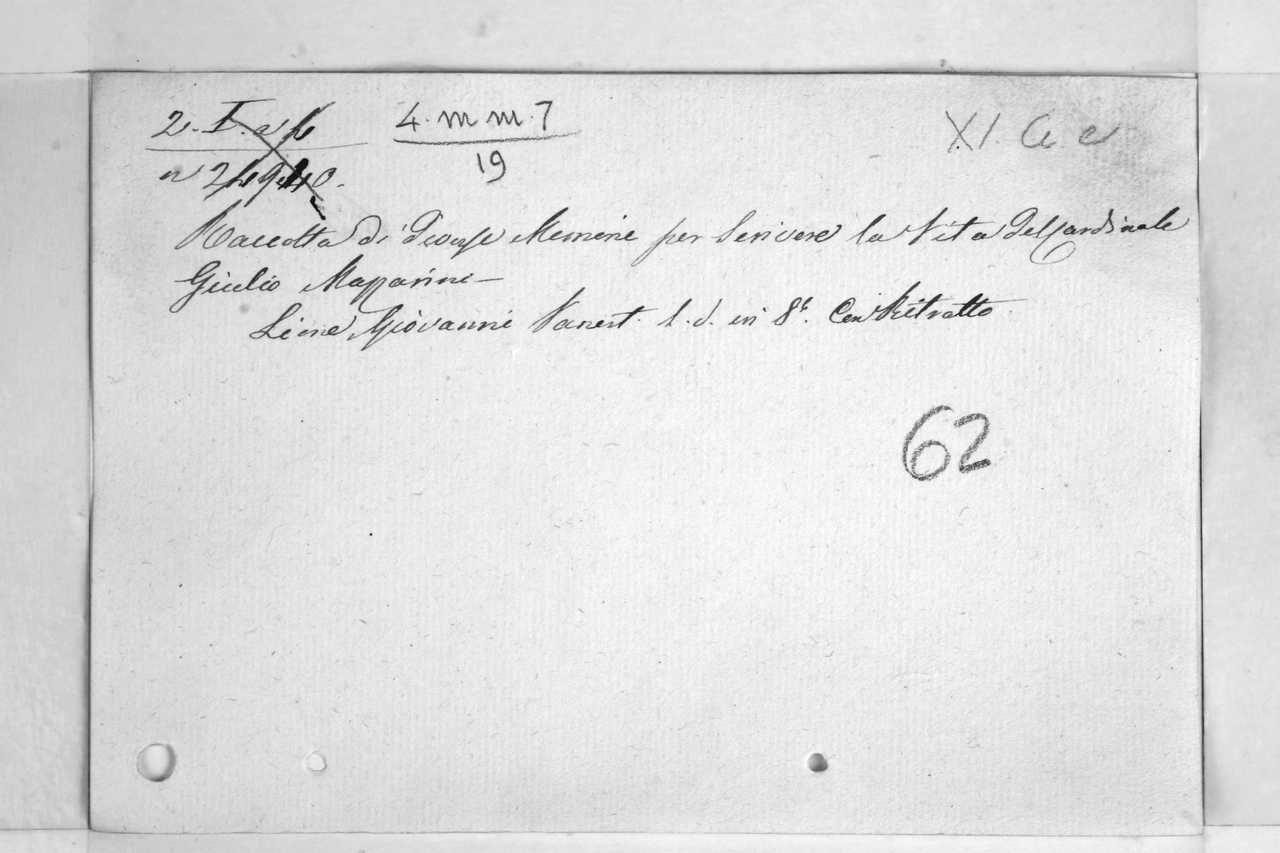 4. m m. 7
19
XI. C
Raccolta di diverse Memorie per Scrivere la Vita del Cardinale
Giulio Mazzarini —
Lione, Giovanni s. d. in 8°. Con Ritratto
62